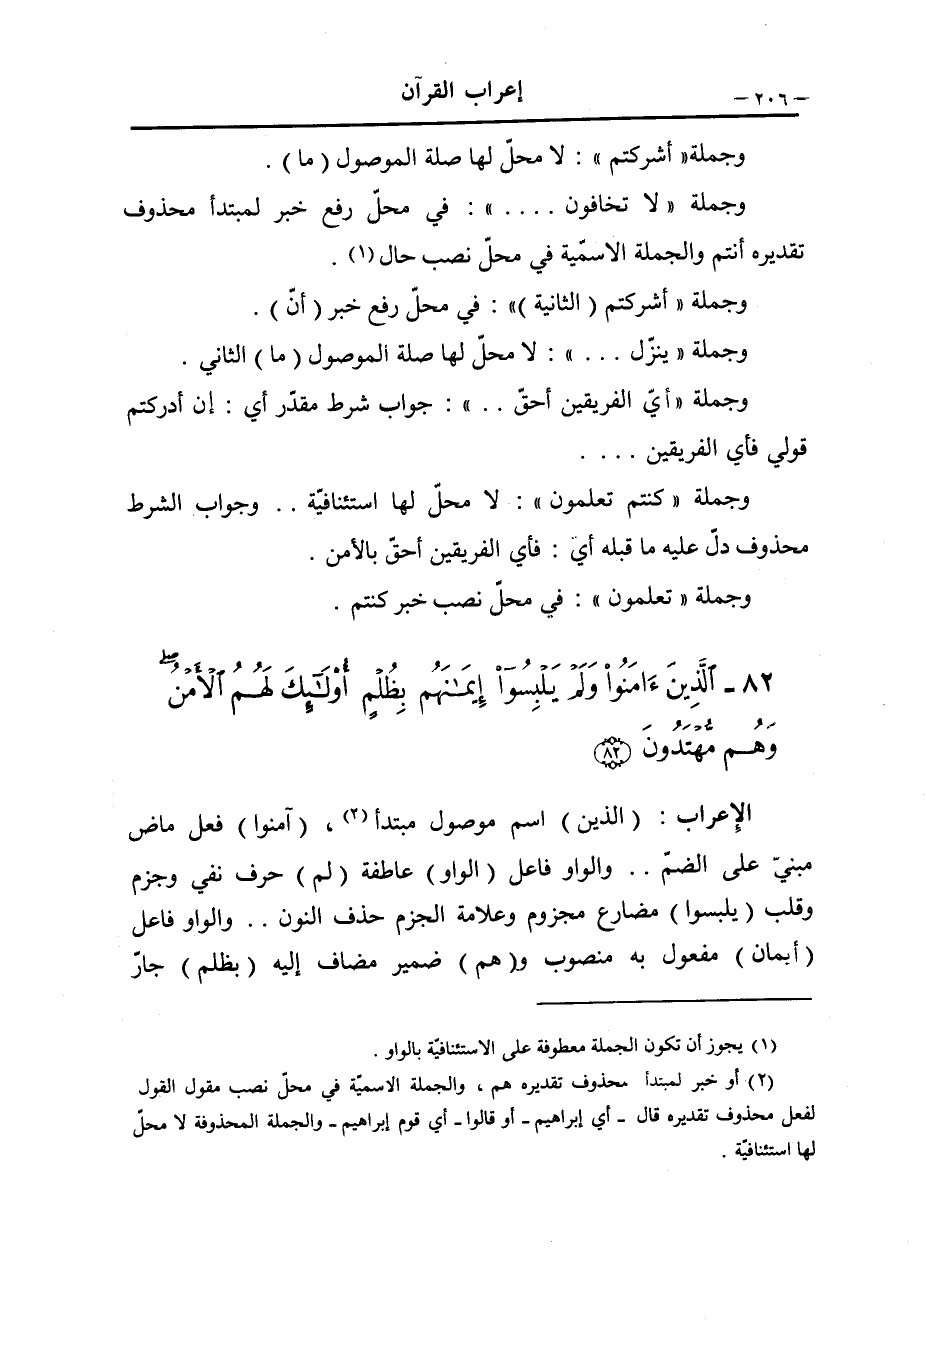 – ٢٠٦ – إعراب القرآن
وجملة« أشركتم » : لا محلّ لها صلة الموصول ( ما ) .
وجملة « لا تخافون .... » : في محلّ رفع خبر لمبتدأ محذوف
تقديره أنتم والجملة الاسمّية في محلّ نصب حال(١) .
وجملة « أشركتم ( الثانية )» : في محلّ رفع خبر ( أنّ ) .
وجملة « ينزّل ... » : لا محلّ لها صلة الموصول ( ما ) الثاني .
وجملة «أيّ الفريقين أحقّ .. » : جواب شرط مقدّر أي : إن أدركتم
قولي فأي الفريقين ....
وجملة « كنتم تعلمون » : لا محلّ لها استئنافيّة .. وجواب الشرط
محذوف دلّ عليه ما قبله أي : فأي الفريقين أحقّ بالأمن .
وجملة « تعلمون » : في محلّ نصب خبر كنتم .
٨٢ ـ ٱلَّذِينَ ءَامَنُوا۟ وَلَمْ يَلْبِسُوٓا۟ إِيمَـٰنَهُم بِظُلْمٍ أُو۟لَـٰٓئِكَ لَهُمُ ٱلْأَمْنُ ۖ
وَهُم مُّهْتَدُونَ ﴿٨٢﴾
الإعراب : ( الذين ) اسم موصول مبتدأ(٢) ، ( آمنوا ) فعل ماض
مبنيّ على الضمّ .. والواو فاعل ( الواو ) عاطفة ( لم ) حرف نفي وجزم
وقلب ( يلبسوا ) مضارع مجزوم وعلامة الجزم حذف النون .. والواو فاعل
( أيمان ) مفعول به منصوب و( هم ) ضمير مضاف إليه ( بظلم ) جارّ
(١) يجوز أن تكون الجملة معطوفة على الاستئنافيّة بالواو .
(٢) أو خبر لمبتدأ محذوف تقديره هم ، والجملة الاسميّة في محلّ نصب مقول القول
لفعل محذوف تقديره قال ـ أي إبراهيم ـ أو قالوا ـ أي قوم إبراهيم ـ والجملة المحذوفة لا محلّ
لها استئنافيّة .